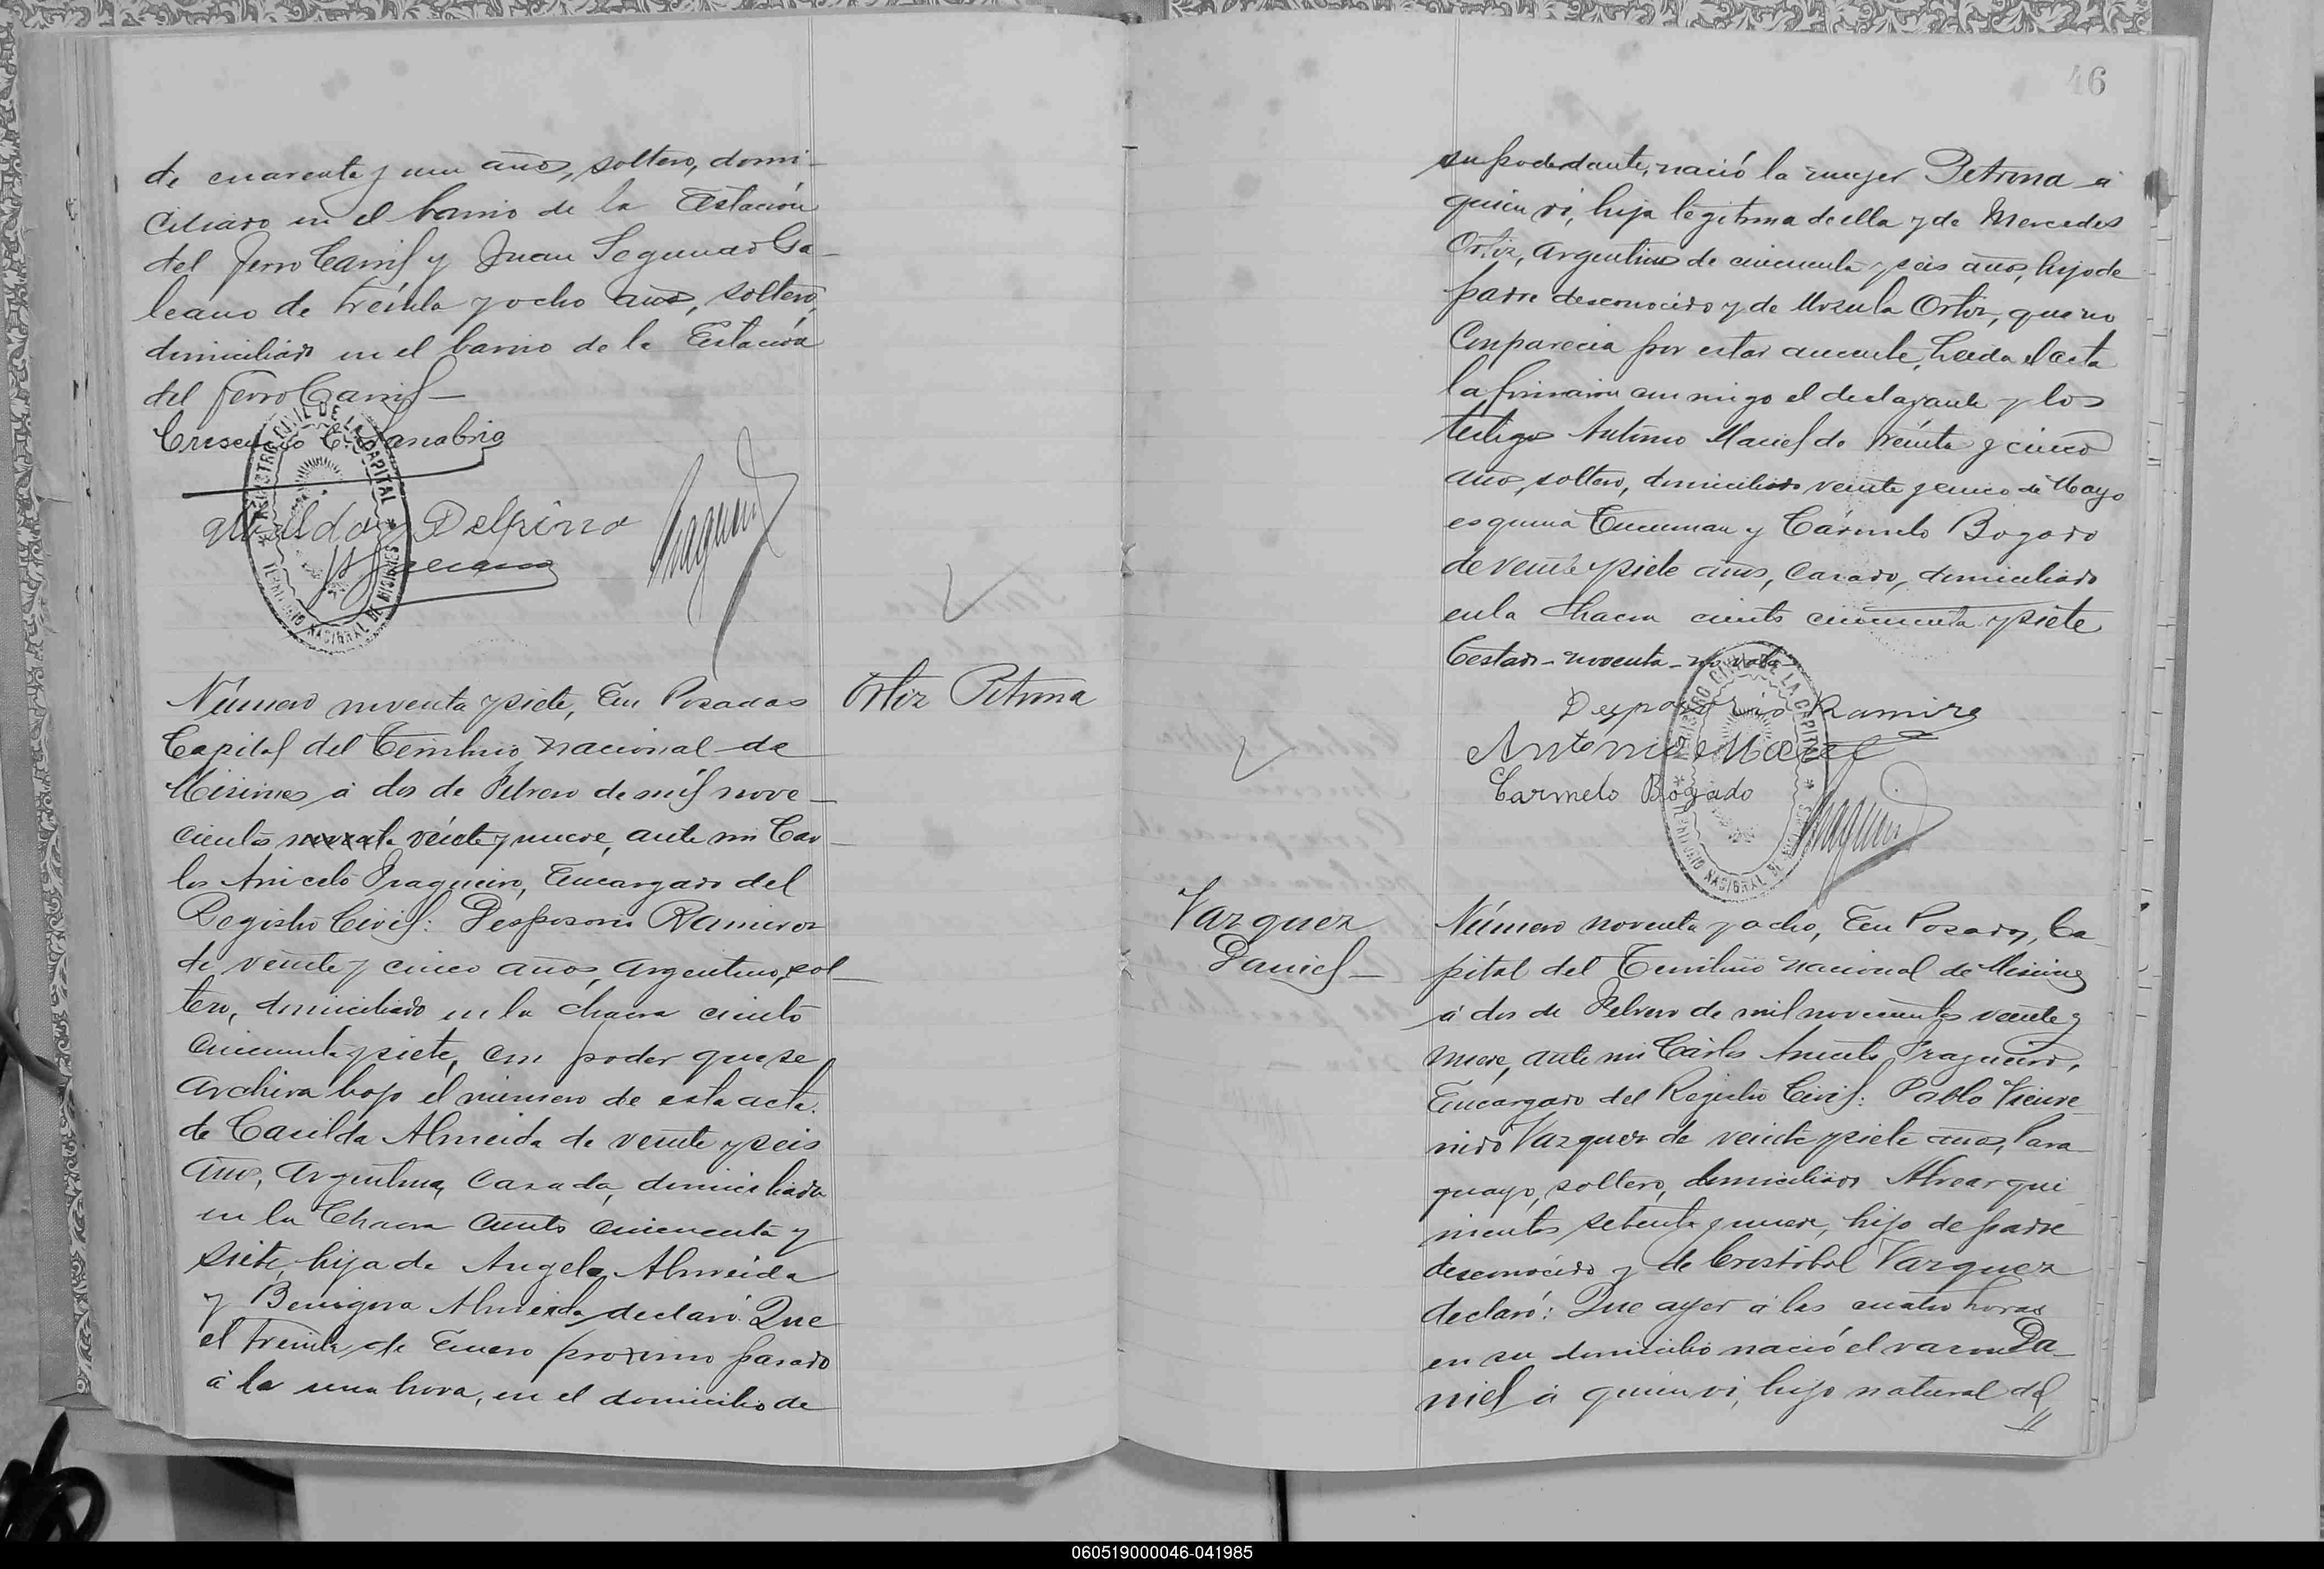 de cuarenta y un años, soltero, domi-
ciliado en el barrio de la Estación
del Ferro Carril y Juan Segundo Ga-
leano de treinta y ocho años, soltero,
domiciliado en el barrio de la Estación
del Ferro Carril -
C. Sanabria
Delpino
REGISTRO CIVIL DE LA CAPITAL
TERRITORIO NACIONAL DE MISIONES
Ortiz Petrona
Número noventa y siete, En Posadas
Capital del Territorio Nacional de
Misiones, á dos de Febrero de mil nove-
cientos veinte y nueve, ante mi Car-
los Aniceto Fragueiro, Encargado del
Registro Civil: Desposorio Ramirez
de veinte y cinco años, Argentino, sol-
tero, domiciliado en la chacra ciento
cincuenta y siete, con poder que se
archiva bajo el número de esta acta.
de Casilda Almeida de veinte y seis
años, Argentina, Casada, domiciliada
en la Chacra ciento cincuenta y
siete, hija de Angela Almeida
y Benigna Almeida declaró: Que
el treinta de Enero proximo pasado
á la una hora, en el domicilio de
46
su poderdante, nació la mujer Petrona á
quien vi, hija legitima de ella y de Mercedes
Ortiz, Argentino de cincuenta y seis años, hijo de
padre desconocido y de Ursula Ortiz, que no
Comparecia por estar ausente, Leida el acta
la firmaron conmigo el declarante y los
testigos Antonio Maciel de treinta y cinco
años, soltero, domiciliado veinte y cinco de Mayo
esquina Tucuman y Cármelo Bogado
de veinte y siete años, Casado, domiciliado
en la Chacra ciento cincuenta y siete
Testado - noventa - no vale -
Desposorio Ramirez
Antonio Maciel
Carmelo Bogado
REGISTRO CIVIL DE LA CAPITAL
TERRITORIO NACIONAL DE MISIONES
Vazquez
Daniel -
Número noventa y ocho, En Posadas, Ca-
pital del Territorio Nacional de Misiones
á dos de Febrero de mil novecientos veinte y
nueve, ante mi Cárlos Aniceto Fragueiro,
Encargado del Registro Civil: Pablo
Vazquez de veinte y siete años, Para-
guayo, soltero, domiciliado Alvear qui-
nientos setenta y nueve, hijo de padre
desconocido y de Cristobal Vazquez
declaró: Que ayer á las cuatro horas
en su domicilio nació el varon Da-
niel á quien vi, hijo natural del
060519000046-041985